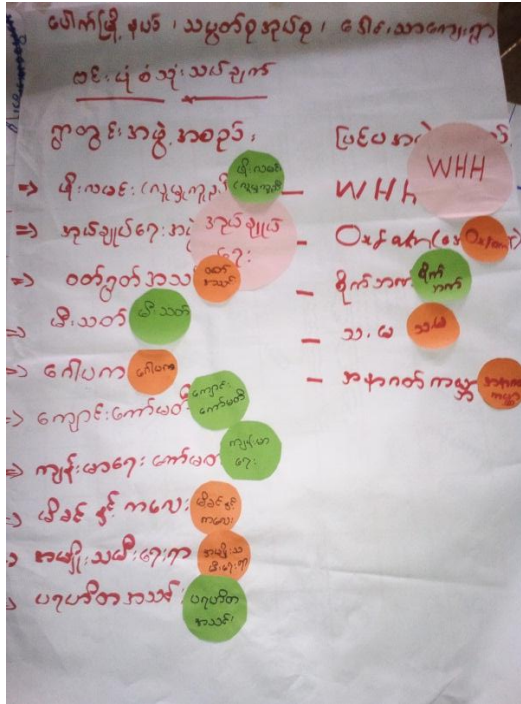 ပေါက်မြို့နယ်၊ သပွတ်စုအုပ်စု၊ ဒေါင်းသာကျေးရွာ
ဗင်းပုံစံသုံးသပ်ချက်
ရွာတွင်းအဖွဲ့အစည်း
⇒ ဖိုးလမင်း (လူမှုကူညီ
ဖိုးလမင်း
⇒ အုပ်ချုပ်ရေး
အုပ်ချုပ်
ရေး
⇒ ဝတ်ရွတ်အသင်း
ဝတ်
အသင်း
⇒ မီးသတ်
မီးသတ်
⇒ ဂေါပက
ဂေါပက
⇒ ကျောင်းကော်မတီ
ကျောင်း
ကော်မတီ
⇒ ကျန်းမာရေးကော်မတီ
ကျန်းမာ
ရေး
⇒ မိခင်နှင့်ကလေး
မိခင်နှင့်
ကလေး
⇒ အမျိုးသမီးရေးရာ
အမျိုးသ
မီးရေးရာ
⇒ ပရဟိတအသင်း
ပရဟိတ
အသင်း
ပြင်ပ
– WHH
WHH
– Oxfam
Oxfam
– စိုက်ဘဏ်
စိုက်
ဘဏ်
– သ.မ
သ.မ
– အနာဂတ်ကမ္ဘာ
အနာဂတ်
ကမ္ဘာ